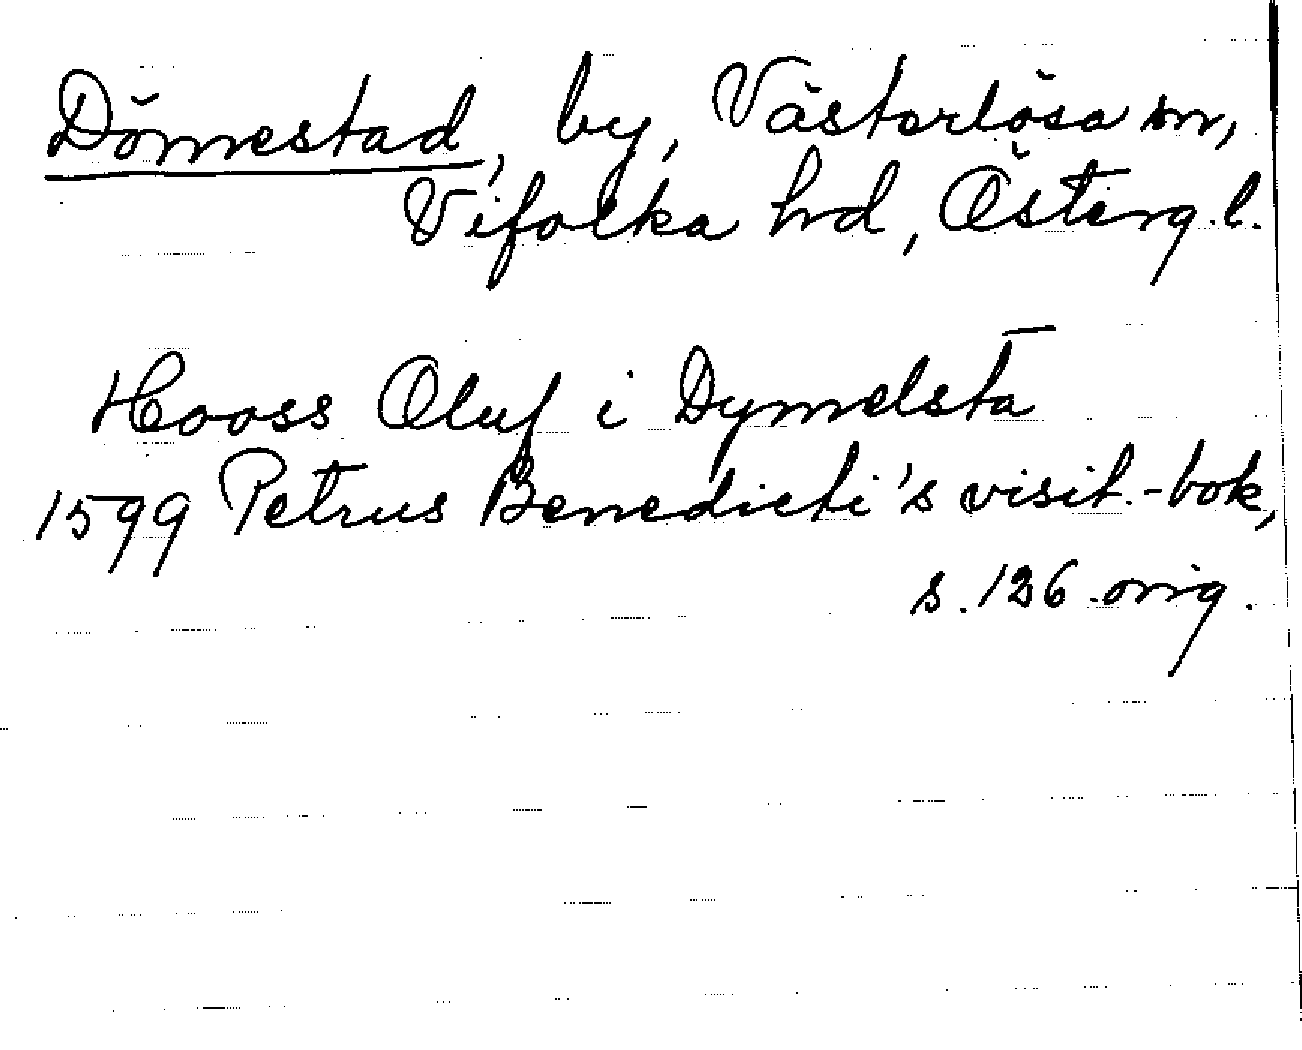 Dömestad, by, Västerlösa sn,
Vifolka hrd, Österg. l.
Hooss Oluf i Dymelsta
1599 Petrus Benedicti's visit.-bok,
s. 126 orig.